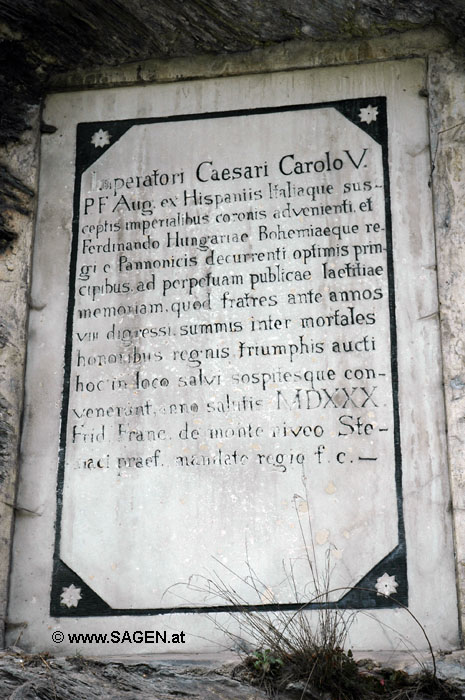 Imperatori Caesari Carolo V.
P F Aug. ex Hispaniis Italiaque sus-
ceptis imperialibus coronis advenienti. et
Ferdinando Hungariae Bohemiaeque re-
gi e Pannonicis decurrenti optimis prin-
cipibus. ad perpetuam publicae laetitiae
memoriam. quod fratres ante annos
VIII digressi. summis inter mortales
honoribus regnis triumphis aucti
hoc in loco salvi sospitesque con-
venerant. anno salutis MDXXX.
Frid Franc de monte niveo Ste-
naci praef. mandato regio f. c. —
© www.SAGEN.at